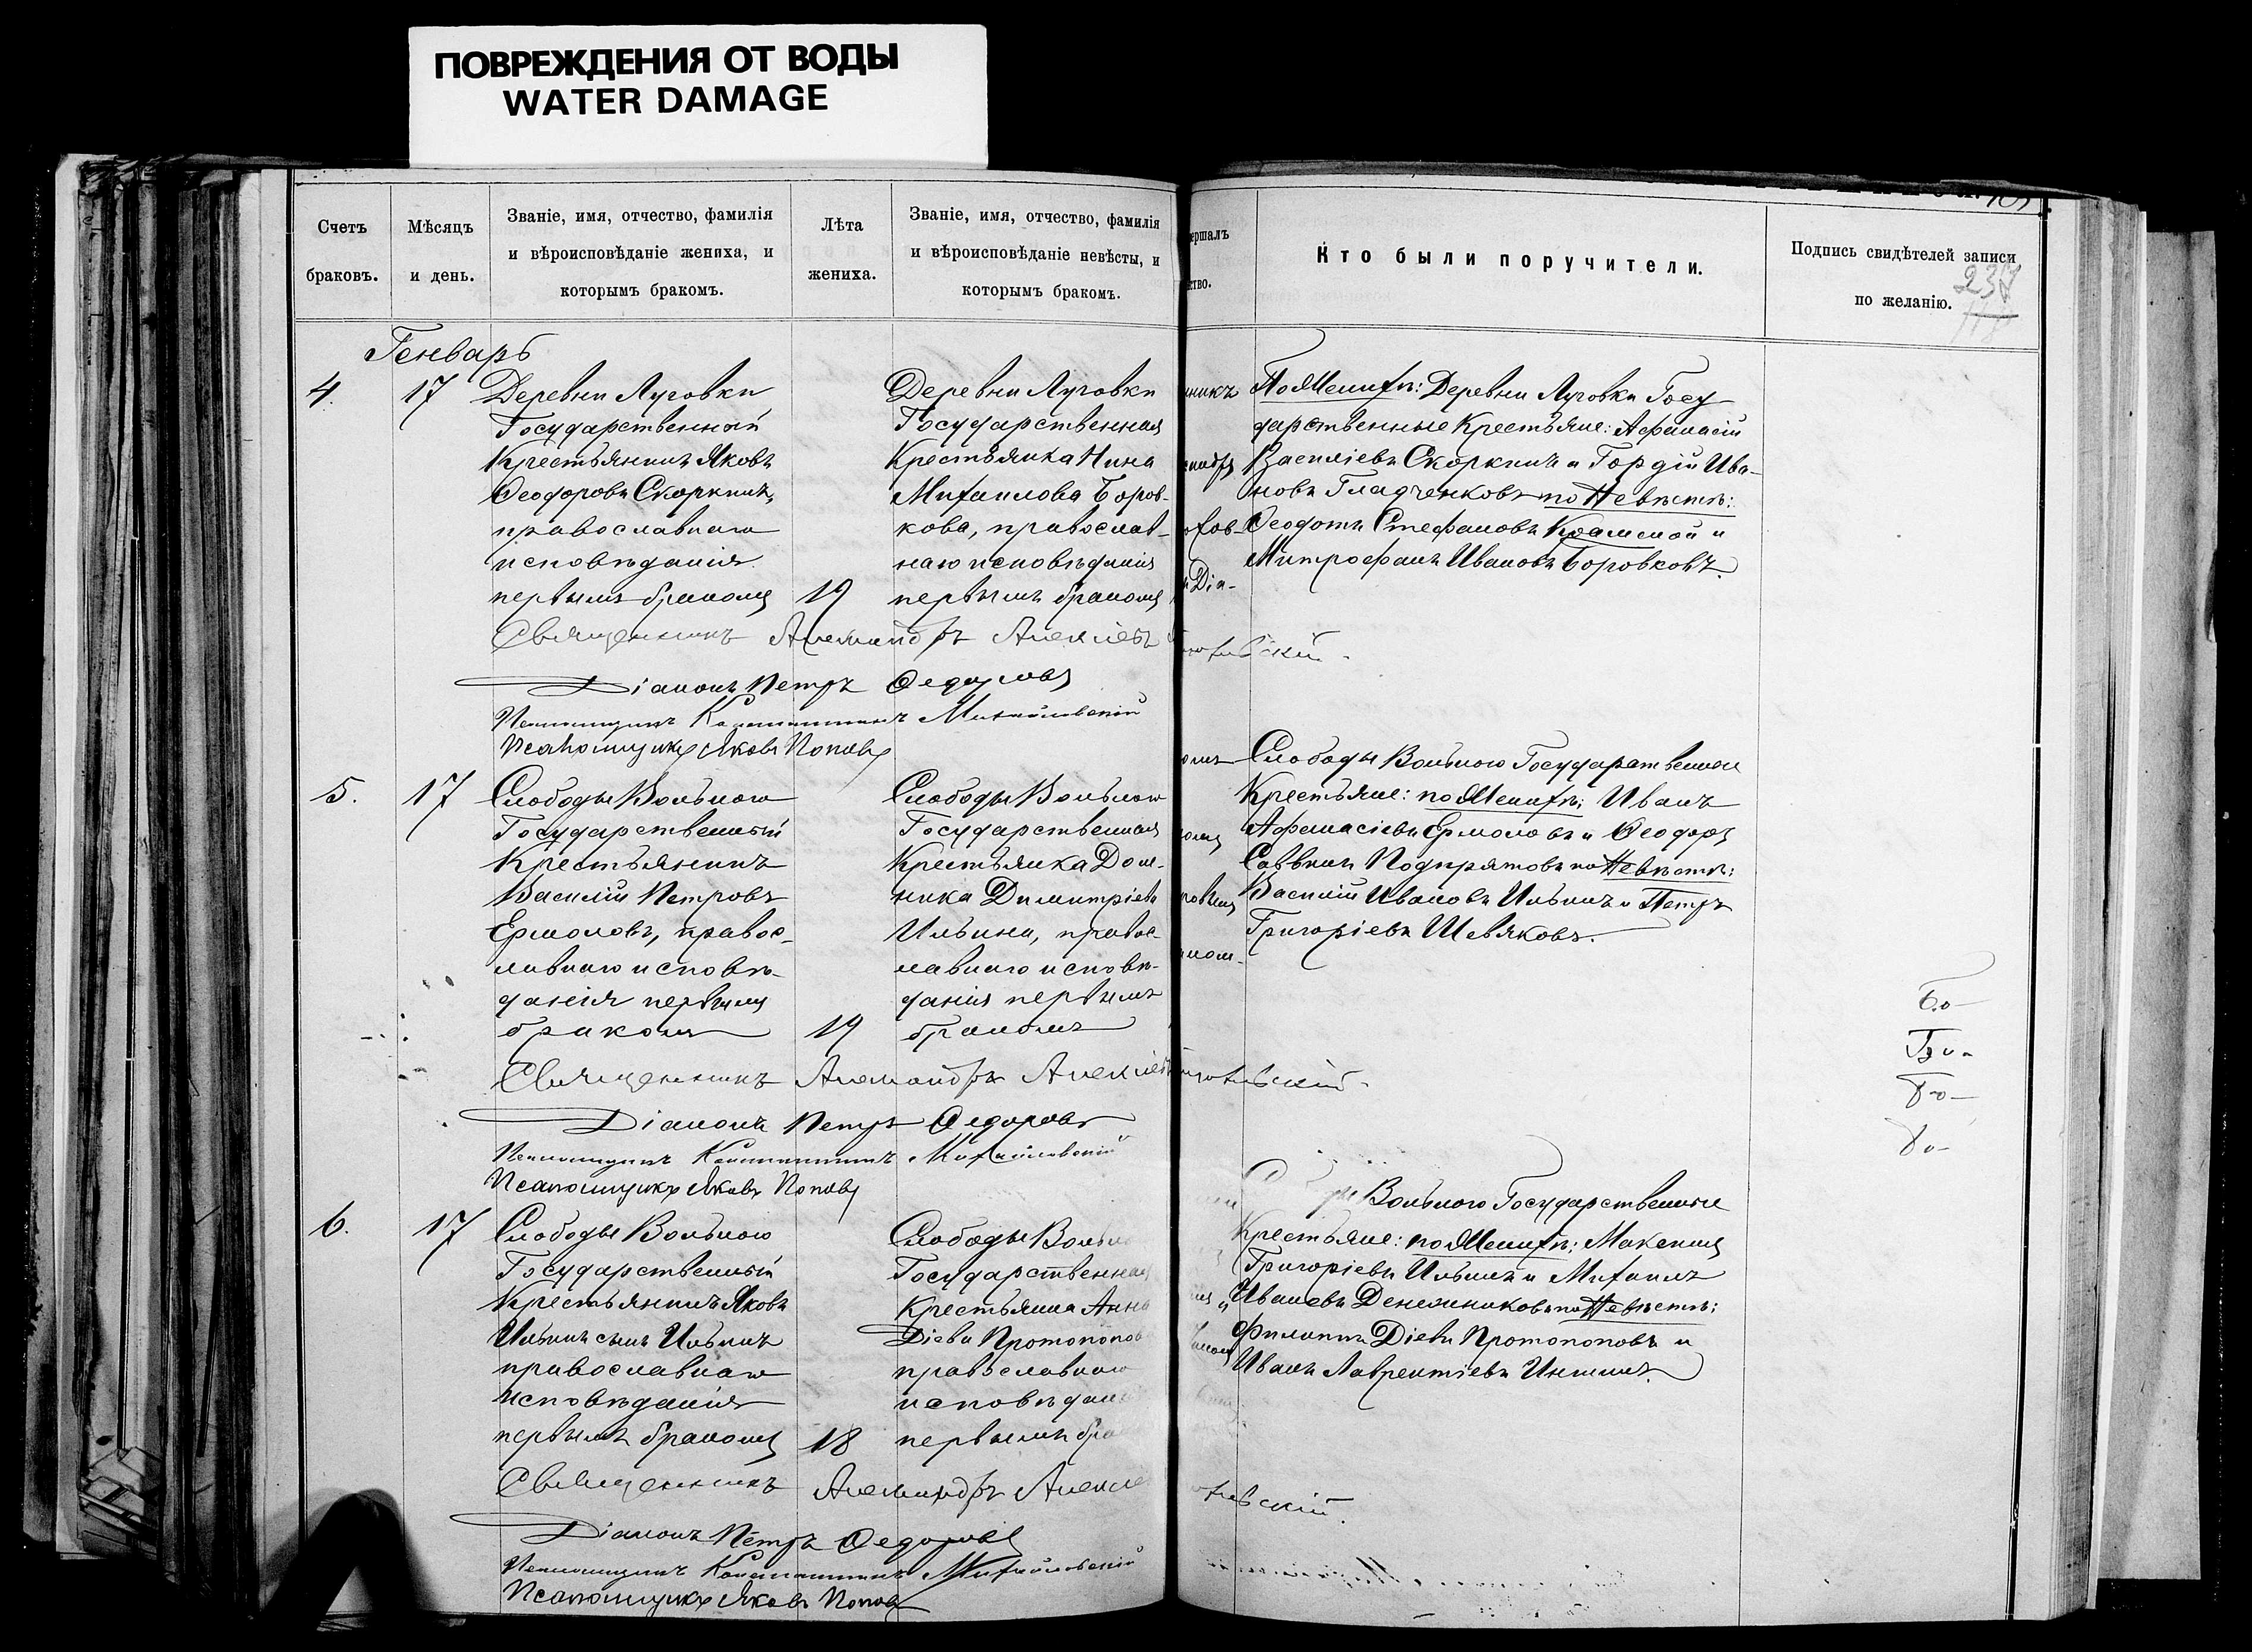 ПОВРЕЖДЕНИЯ ОТ ВОДЫ
WATER DAMAGE
Счетъ браковъ.
Мѣсяцъ и день.
Званіе, имя, отчество, фамилія
и вѣроисповѣданіе жениха, и
которымъ бракомъ.
Лѣта жениха.
Званіе, имя, отчество, фамилія
и вѣроисповѣданіе невѣсты, и
которымъ бракомъ.
Кто были поручители.
Подпись свидѣтелей записи
по желанію.
237
Генварь
4.
17
Деревни Луговки
Государственный
Крестьянинъ Яковъ
Ѳеодоровъ Скоркинъ,
православнаго
исповѣданія
первымъ бракомъ
19
Деревни Луговки
Государственная
Крестьянка Нина
Михаилова Боров-
кова, православ-
наго исповѣданія
первымъ бракомъ
По Женихѣ: Деревни Луговки Госу
дарственные Крестьяне: Афанасій
Василіевъ Скоркинъ и Гордій Ива-
новъ Гладченковъ по Невѣстѣ:
Ѳеодотъ Стефановъ Крамской и
Митрофанъ Ивановъ Боровковъ.
Священникъ Александръ Алексіевъ
Діаконъ Петръ Ѳедоровъ
Псаломщикъ Константинъ Михайловскій
Псаломщикъ Яковъ Поповъ
5.
17
Слободы Вольнаго
Государственный
Крестьянинъ
Василій Петровъ
Ермоловъ, правос-
лавнаго исповѣ-
данія первымъ
бракомъ
19
Слободы Вольнаго
Государственная
Крестьянка Дом-
ника Димитріева
Ильина, правос-
лавнаго исповѣ-
данія первымъ
бракомъ
Слободы Вольнаго Государственные
Крестьяне: по Женихѣ: Иванъ
Афанасіевъ Ермоловъ и Ѳеодоръ
Саввинъ Подпрятовъ по Невѣстѣ:
Василій Ивановъ Ильинъ и Петръ
Григоріевъ Шевяковъ.
Священникъ Александръ Алексіевъ
Діаконъ Петръ Ѳедоровъ
Псаломщикъ Константинъ Михайловскій
Псаломщикъ Яковъ Поповъ
6.
17
Слободы Вольнаго
Государственный
Крестьянинъ Яковъ
Ильинъ сынъ Ильинъ
православнаго
исповѣданія
первымъ бракомъ
18
Слободы Вольна
Государственная
Крестьянка Анна
Діева Протопопов
православнаго
исповѣдан
первымъ бра
Вольнаго Государственные
Крестьяне: по Женихѣ: Максимъ
Григоріевъ Ильинъ и Михаилъ
Ивановъ Денежниковъ по Невѣстѣ:
Филиппъ Діевъ Протопоповъ и
Иванъ Лаврентіевъ Инишинъ.
Священникъ Александръ Алексіе
Діаконъ Петръ Ѳедоровъ
Псаломщикъ Константинъ Михайловскій
Псаломщикъ Яковъ Поповъ